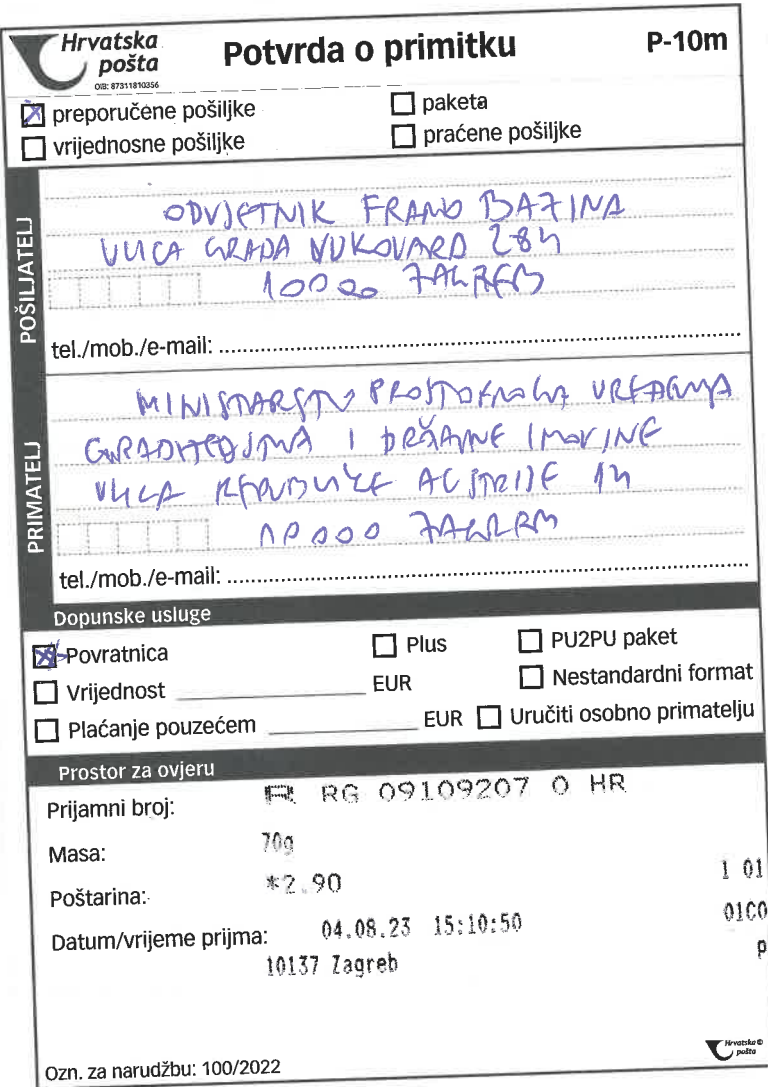 Hrvatska pošta
OIB: 87311810356
Potvrda o primitku
P-10m
preporučene pošiljke
paketa
vrijednosne pošiljke
praćene pošiljke
POŠILJATELJ
ODVJETNIK FRANO BAŽINA
ULICA GRADA VUKOVARA 284
10000 ZAGREB
tel./mob./e-mail:
PRIMATELJ
MINISTARSTVO PROSTORNOGA UREĐENJA
GRADITELJSTVA I DRŽAVNE IMOVINE
ULICA REPUBLIKE AUSTRIJE 14
10000 ZAGREB
tel./mob./e-mail:
Dopunske usluge
Povratnica
Plus
PU2PU paket
Vrijednost EUR
Nestandardni format
Plaćanje pouzećem EUR
Uručiti osobno primatelju
Prostor za ovjeru
Prijamni broj: R RG 09109207 0 HR
Masa: 70g
Poštarina: *2.90
1 01
Datum/vrijeme prijma: 04.08.23 15:10:50
01C0
10137 Zagreb
P
Hrvatska pošta
Ozn. za narudžbu: 100/2022